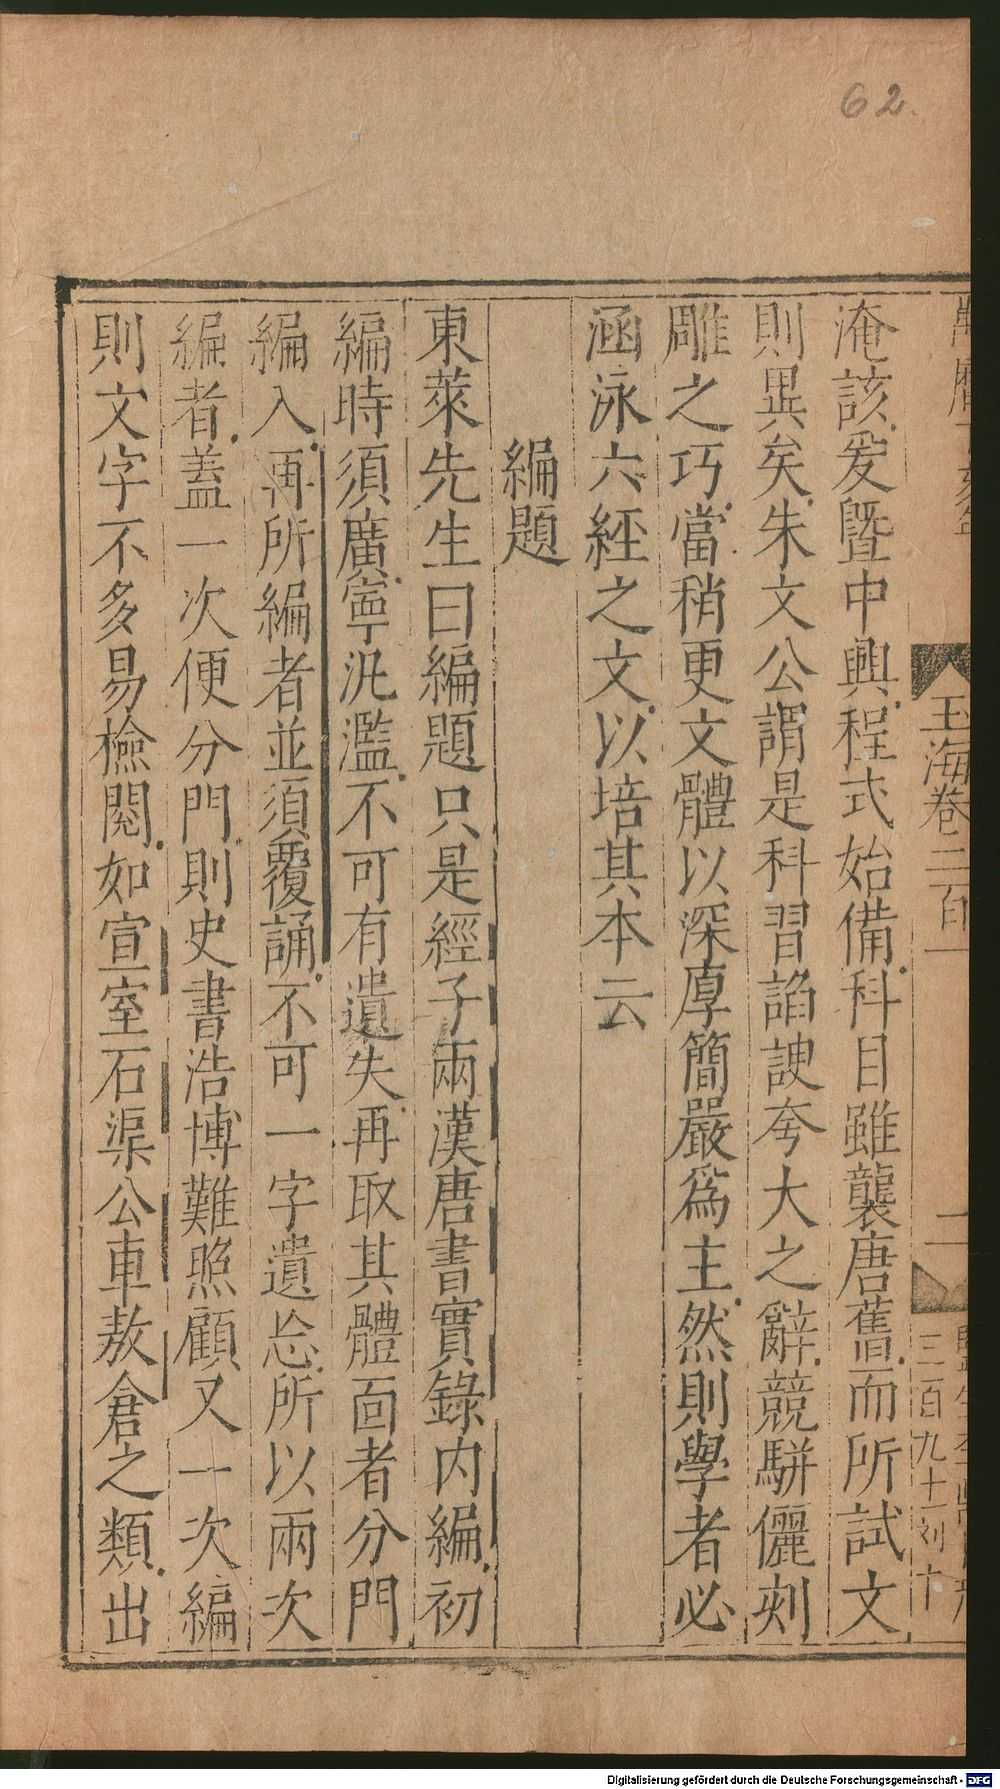 62.
玉海卷二百一
二
淹該爰曁中興程式始備科目雖襲唐舊而所試文
則異矣朱文公謂是科習諂諛夸大之辭競駢儷刻
雕之巧當稍更文體以深厚簡嚴爲主然則學者必
涵泳六經之文以培其本云
編題
東萊先生曰編題只是經子兩漢唐書實錄内編初
編時須廣寧汎濫不可有遺失再取其體靣者分門
編入再所編者並須覆誦不可一字遺忘所以兩次
編者蓋一次便分門則史書浩博難照顧又一次編
則文字不多易檢閱如宣室石渠公車敖倉之類出
Digitalisierung gefördert durch die Deutsche Forschungsgemeinschaft - DFG